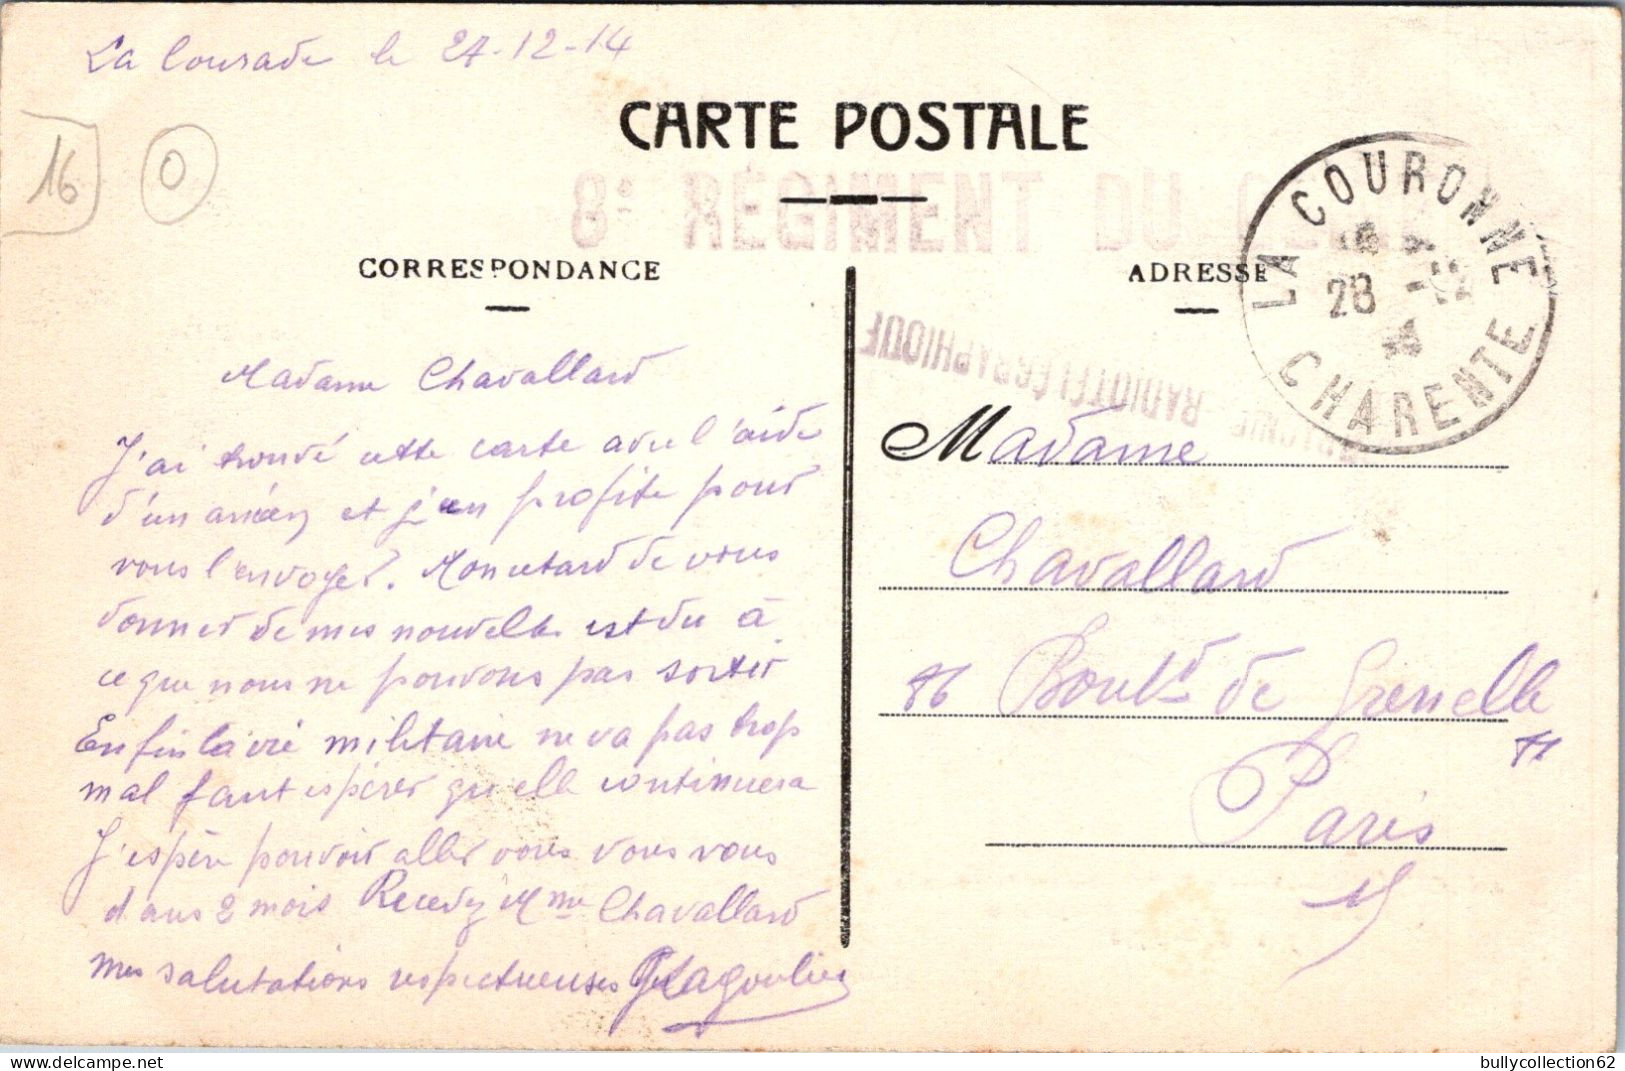 La Courade le 27-12-14
CARTE POSTALE
16
0
8e REGIMENT DU
LA COURONNE
28 12
CHARENTE
CORRESPONDANCE
ADRESSE
RADIOTÉLÉGRAPHIQUE
Madame Chavallard
J'ai trouvé cette carte avec l'aide
d'un ancien et j'en profite pour
vous l'envoyer. Mon retard de vous
donner de mes nouvelle est du à
ce que nous ne pouvons pas sortir
Enfin la vie militaire ne va pas trop
mal faut espérer qu'elle continuera
J'espère pouvoir aller vous vous
dans 2 mois Recevez Mme Chavallard
mes salutations respectueuses Lagoulie
Madame
Chavallard
86 Boul.d de Grenelle
Paris
bullycollection62